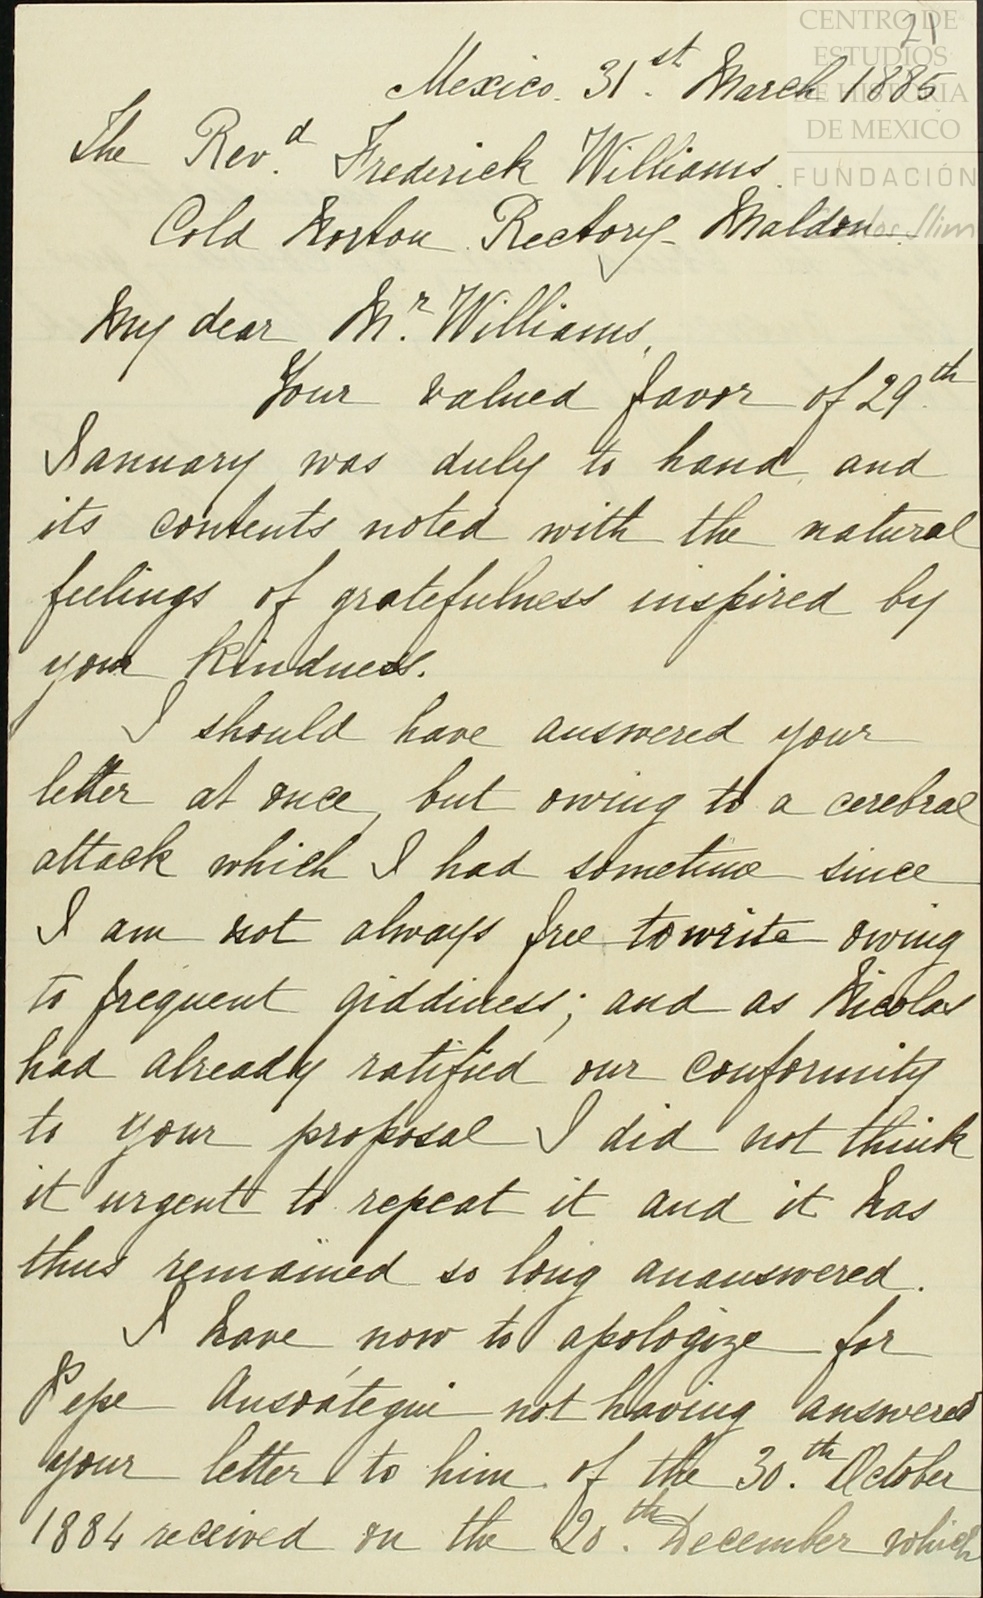 21
CENTRO DE
ESTUDIOS
DE HISTORIA
DE MEXICO
FUNDACIÓN
Carlos Slim
Mexico. 31st. March 1885
The Revd. Frederick Williams.
Cold Norton Rectory - Maldon
My dear Mr. Williams,
Your valued favor of 29th.
January was duly to hand, and
its contents noted with the natural
feelings of gratefulness inspired by
your kindness.
I should have answered your
letter at once, but owing to a cerebral
attack which I had sometime since
I am not always free to write owing
to frequent giddiness; and as Nicolas
had already ratified our conformity
to your proposal I did not think
it urgent to repeat it and it has
thus remained so long ananswered.
I have now to apologize for
Pepe Ansoátegui not having answered
your letter to him of the 30.th October
1884 received on the 20.th December which